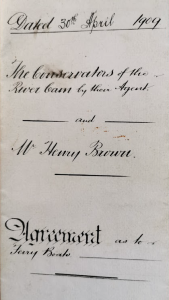 Dated 30th April 1909
The Conservators of the
River Cam by their Agent
and
Mr Henry Brown
Agreement as to
Ferry Boats